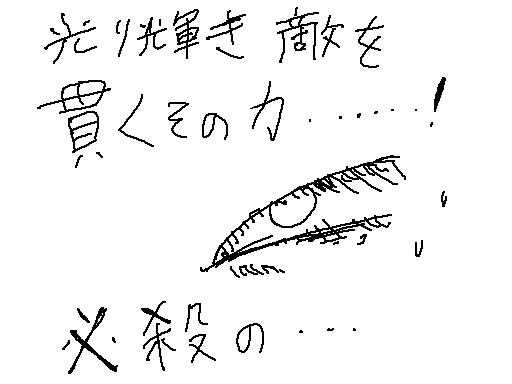 光り輝き 敵を
貫くその力......!
必殺の...